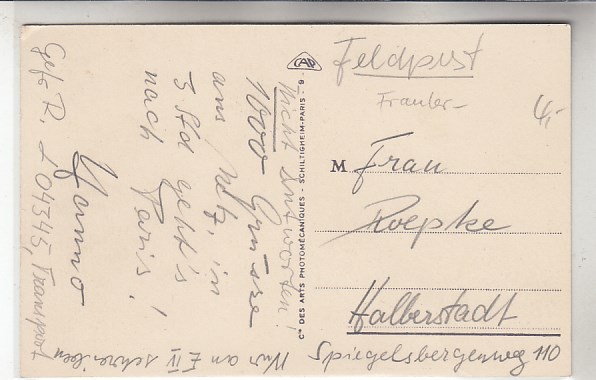 Gefr. R. L 04345, Transport
Nicht antworten!
1000 Grüsse
aus Metz, in
3 Std geht's
nach Paris!
Hanno
Nur an E IV schreiben
CAP
Cie DES ARTS PHOTOMÉCANIQUES - SCHILTIGHEIM-PARIS - 9
Feldpost
4,-
M Frau
Roepke
Halberstadt
Spiegelsbergenweg 110